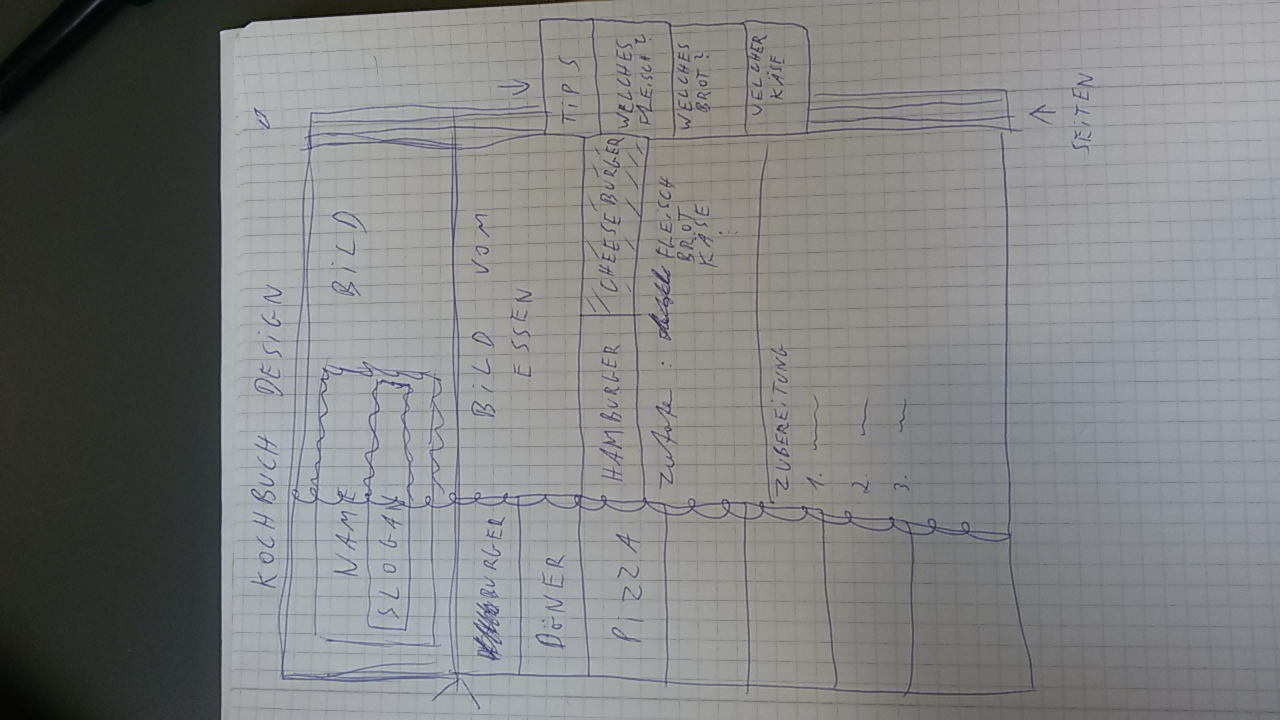 KOCHBUCH DESIGN
NAME
SLOGAN
BILD
BURGER
DÖNER
PIZZA
BILD VOM
ESSEN
HAMBURGER
CHEESEBURGER
Zutaten : FLEISCH
BROT
KÄSE
ZUBEREITUNG
1.
2.
3.
TIPS
WELCHES
FLEISCH?
WELCHES
BROT?
WELCHER
KÄSE
SEITEN